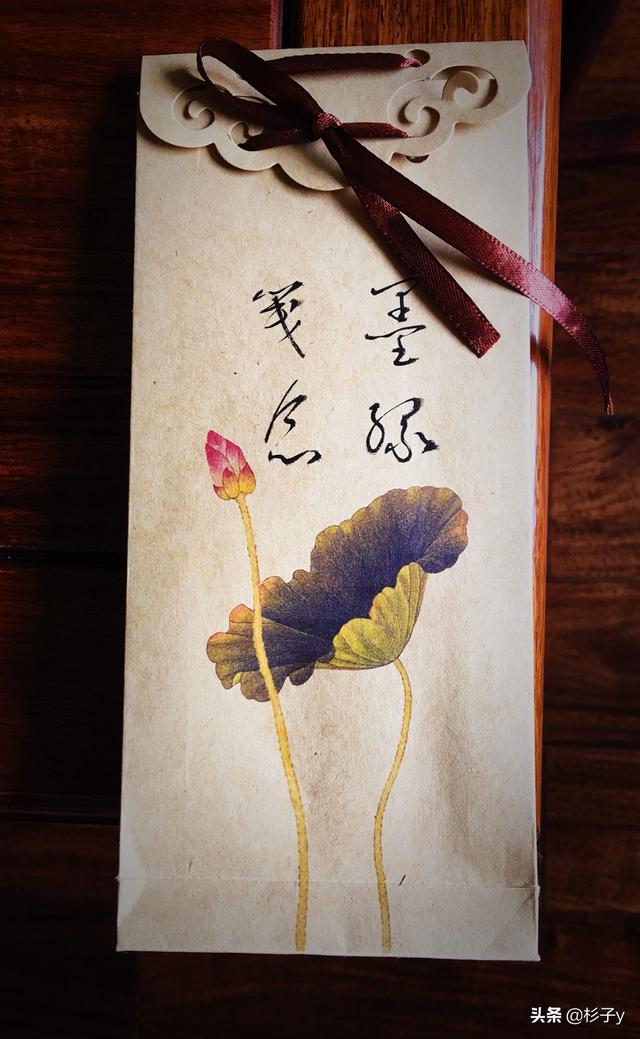 墨缘
笺念
头条 @杉子y